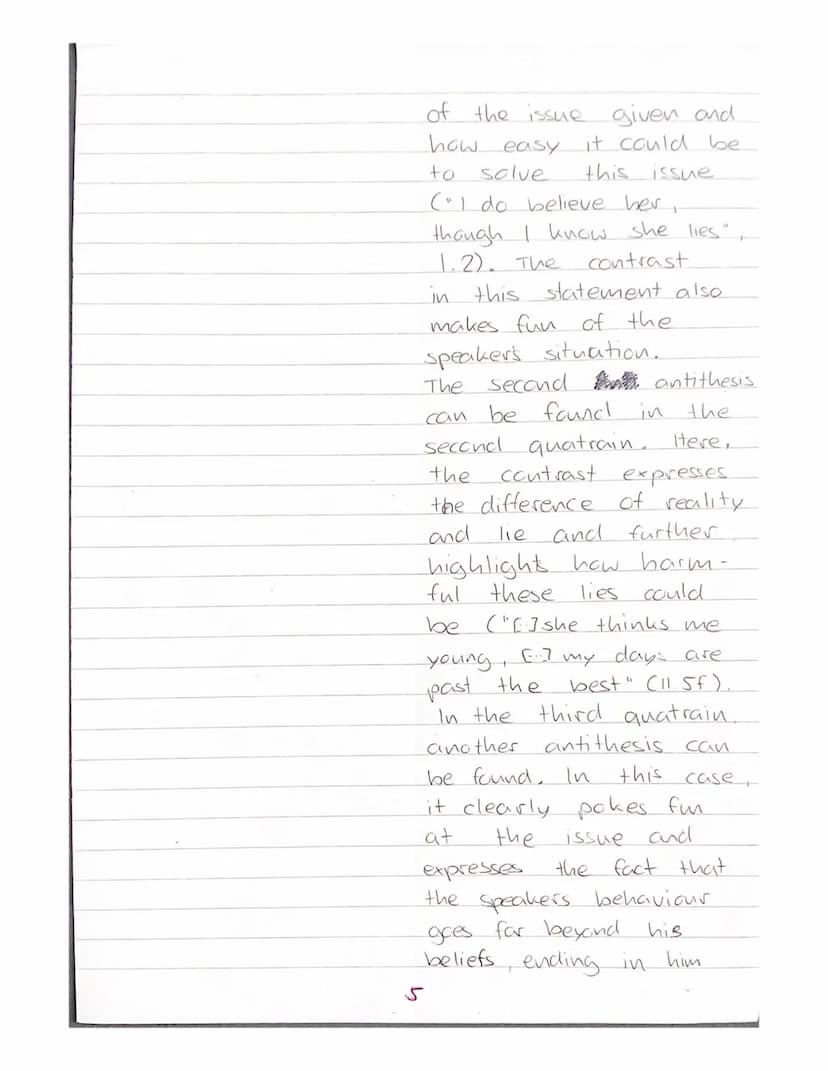 of the issue given and
how easy it could be
to solve this issue
("I do believe her,
though I know she lies",
l.2). The contrast
in this statement also
makes fun of the
speaker's situation.
The second antithesis
can be found in the
second quatrain. Here,
the contrast expresses
the difference of reality
and lie and further
highlight how harm-
ful these lies could
be ("[..] she thinks me
young, [..] my days are
past the best" (ll. 5f).
In the third quatrain
another antithesis can
be found. In this case,
it clearly pokes fun
at the issue and
expresses the fact that
the speakers behaviour
goes far beyond his
beliefs, ending in him
5